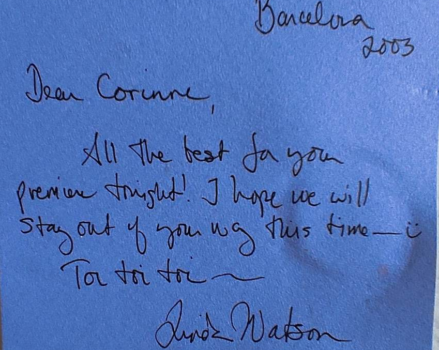 Barcelona
2003
Dear Corinne,
All the best for your
premiere tonight! I hope we will
stay out of your wg this time—☺
Toi toi toi~
Linda Watson